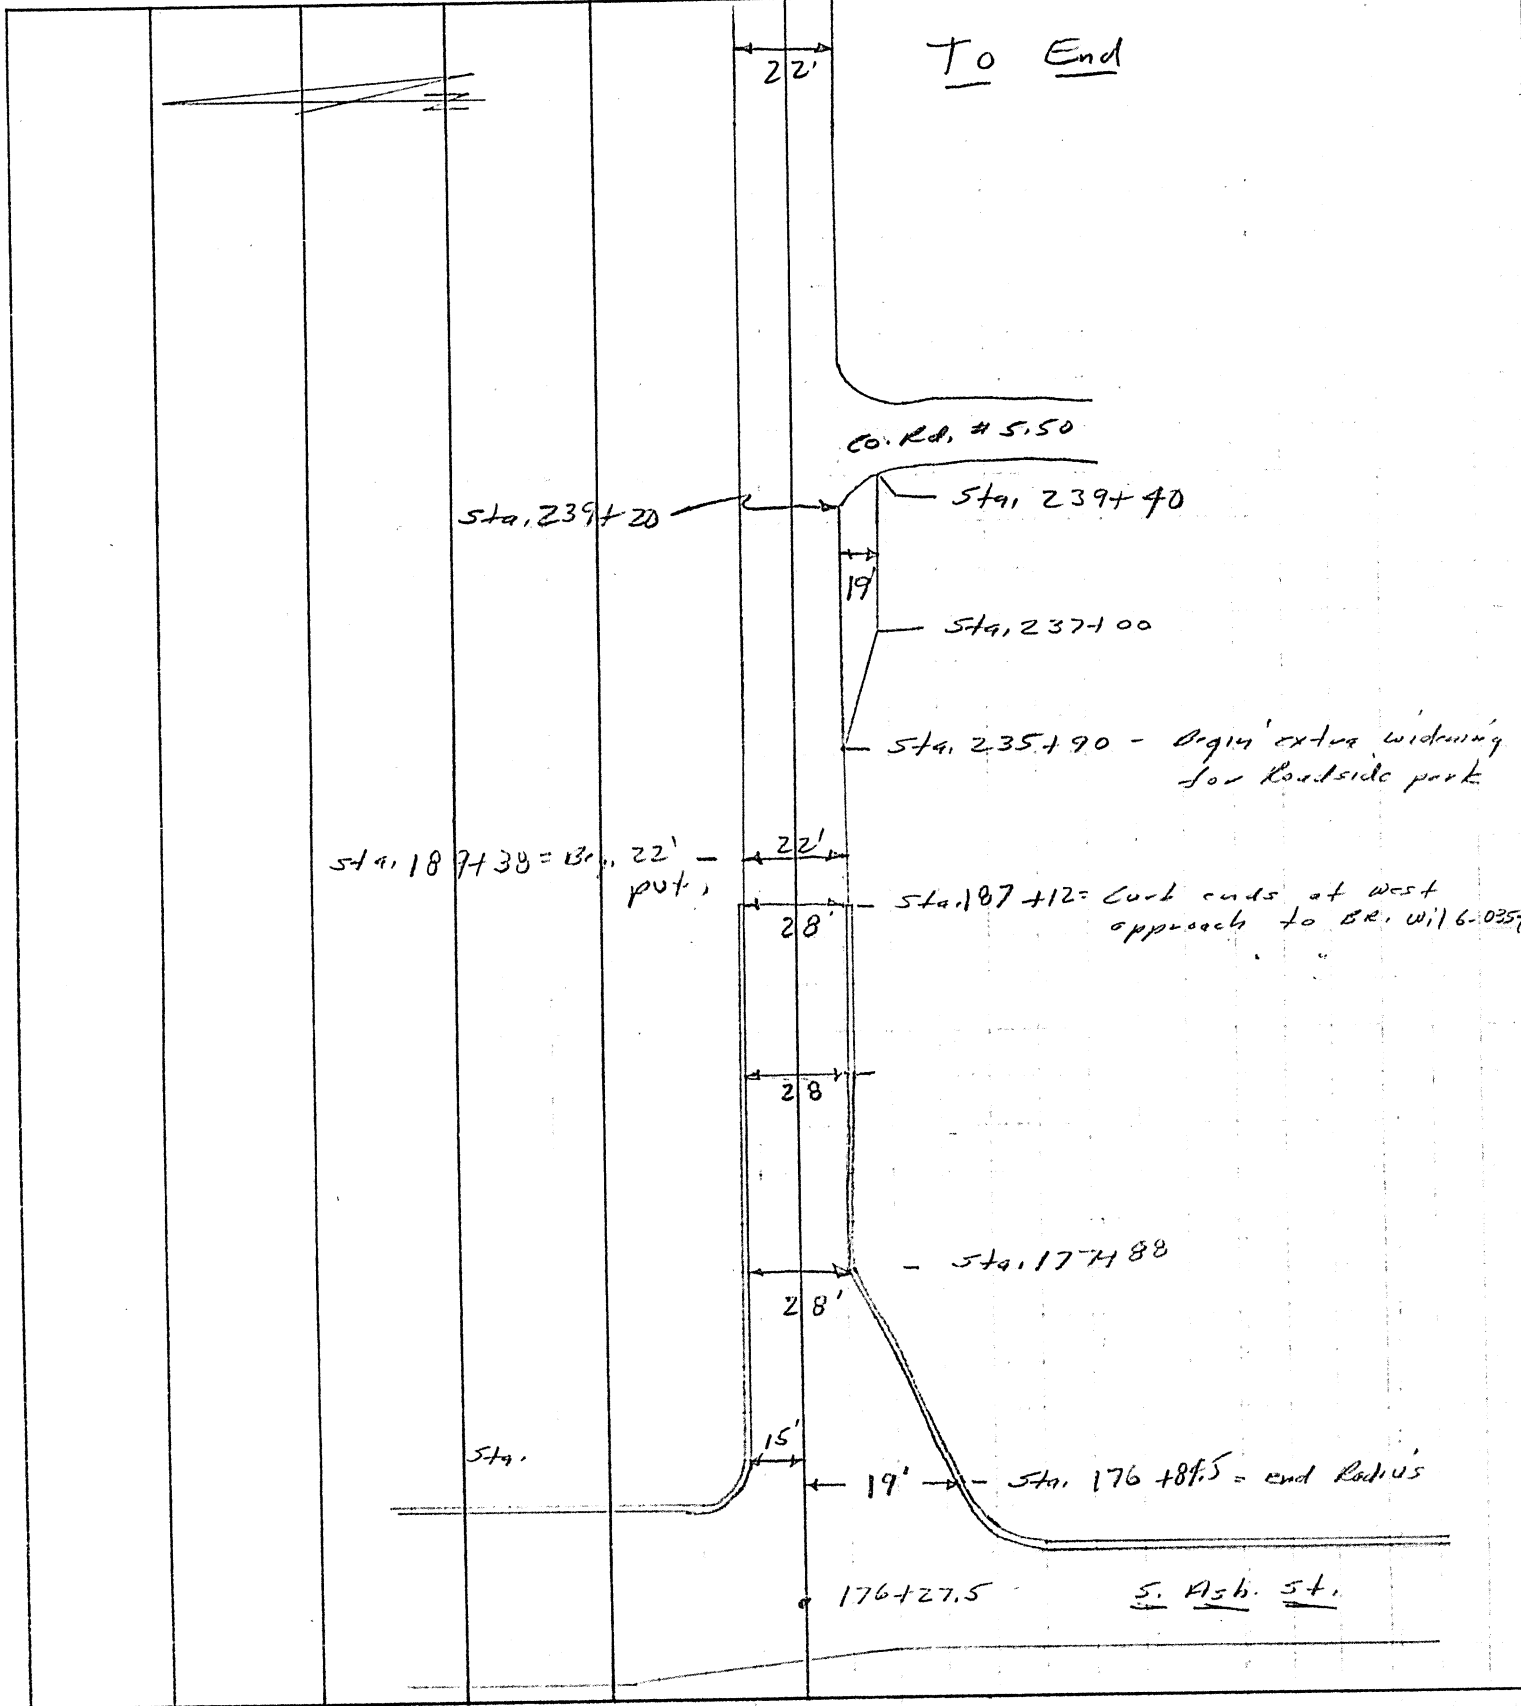 22'
To End
Co. Rd. # 5.50
Sta. 239+20
Sta. 239+40
19'
Sta. 237+00
Sta. 235+90 - Begin extra widening
for Roadside park
22'
Sta. 187+38 = Beg. 22'
pvt.
28'
Sta. 187+12 = Curb ends at west
approach to BR. Wil 6-0359
28
Sta. 177+88
28'
Sta.
15'
19'
Sta. 176+89.5 = end Radius
176+27.5
S. Ash. St.